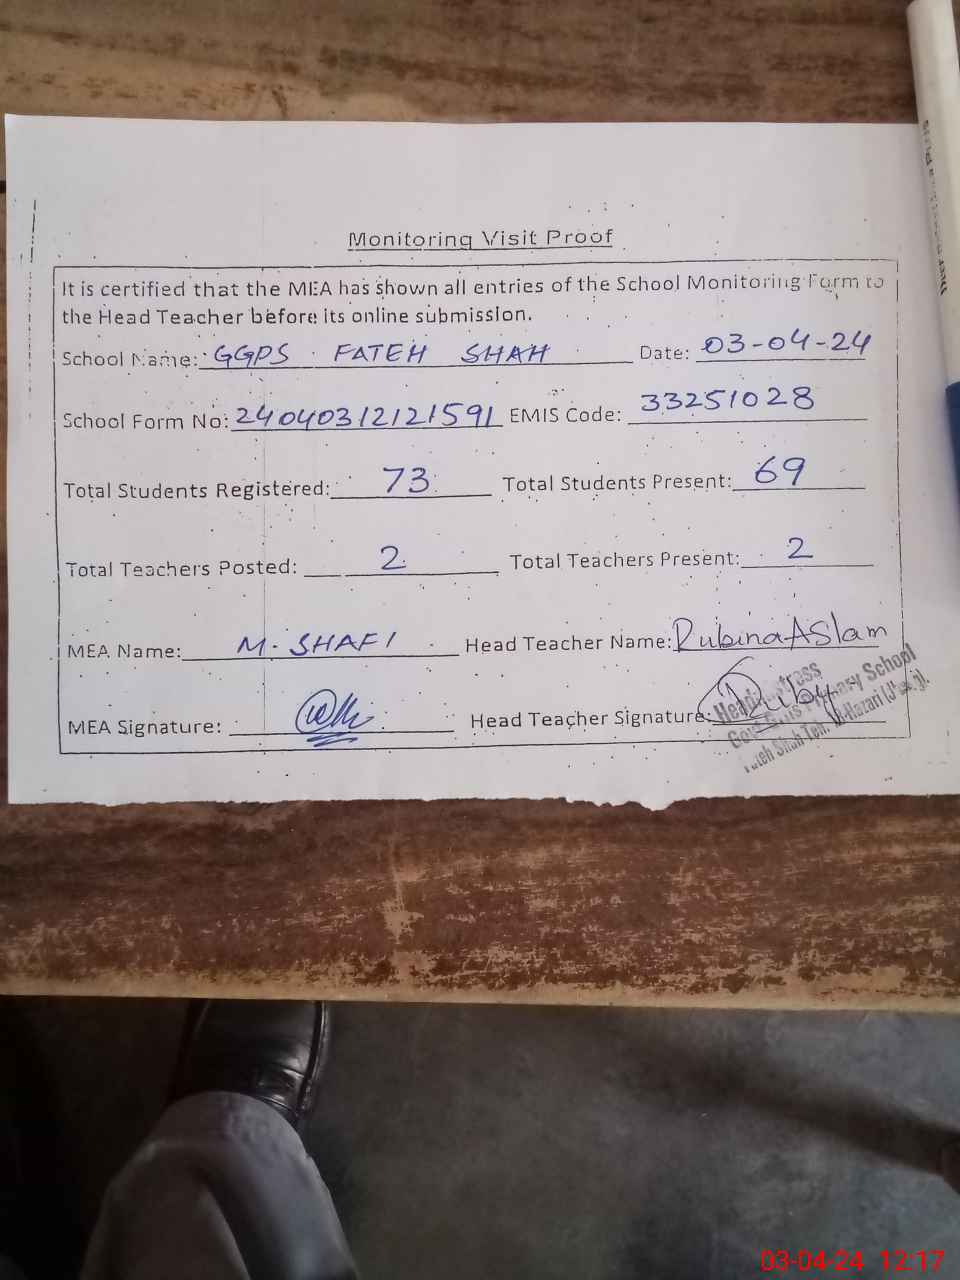 Monitoring Visit Proof
It is certified that the MEA has shown all entries of the School Monitoring Form to
the Head Teacher before its online submission.
School Name: GGPS FATEH SHAH Date: 03-04-24
School Form No: 24040312121591 EMIS Code: 33251028
Total Students Registered: 73 Total Students Present: 69
Total Teachers Posted: 2 Total Teachers Present: 2
MEA Name: M. SHAFI Head Teacher Name: Rubina Aslam
MEA Signature: Head Teacher Signature:
Headmistress
Govt Girls Primary School
Fateh Shah Teh.
03-04-24 12:17